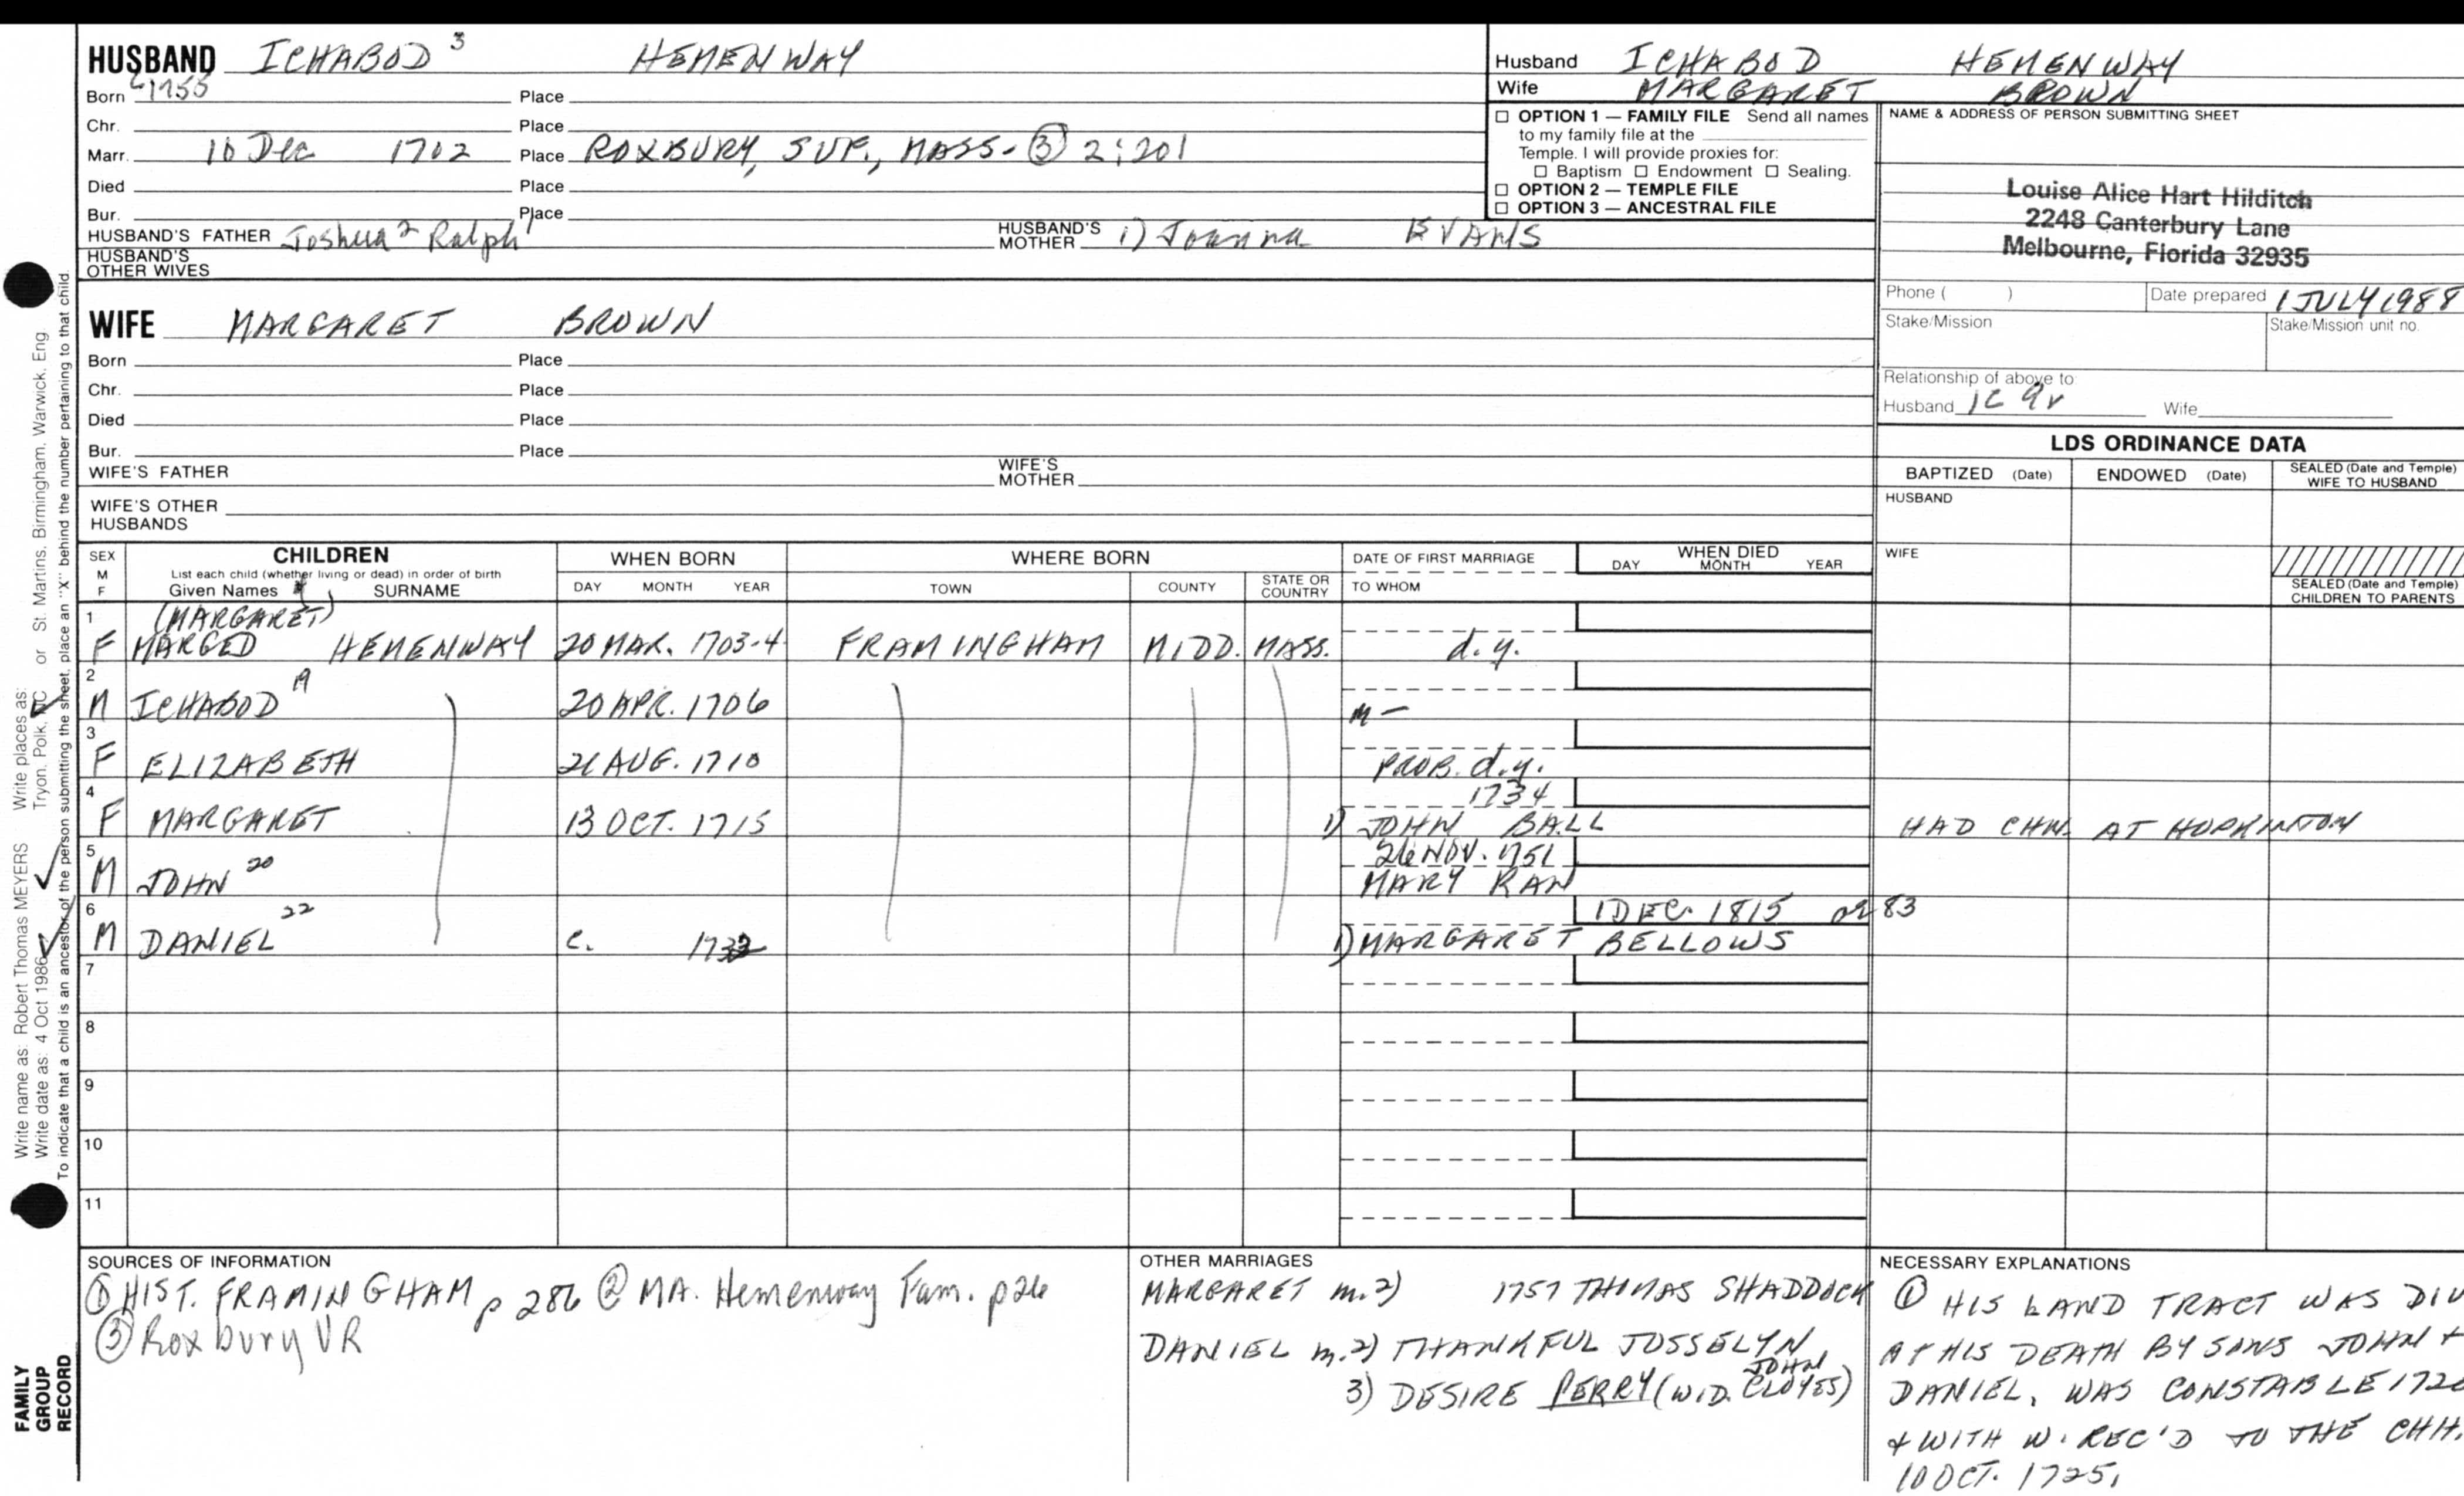 HUSBAND ICHABOD 3 HEMENWAY
Born Place
Chr. Place
Marr. 16 Dec 1702 Place ROXBURY, SUF., MASS. ③ 2:201
Died Place
Bur. Place
HUSBAND'S FATHER Joshua 2 Ralph 1 HUSBAND'S MOTHER 1) Joanna EVANS
HUSBAND'S OTHER WIVES
Husband ICHABOD HEMENWAY
Wife MARGARET BROWN
☐ OPTION 1 — FAMILY FILE Send all names
to my family file at the
Temple. I will provide proxies for:
☐ Baptism ☐ Endowment ☐ Sealing.
☐ OPTION 2 — TEMPLE FILE
☐ OPTION 3 — ANCESTRAL FILE
NAME & ADDRESS OF PERSON SUBMITTING SHEET
Louise Alice Hart Hilditch
2248 Canterbury Lane
Melbourne, Florida 32935
Phone ( ) Date prepared 1 JULY 1988
Stake/Mission Stake/Mission unit no.
Relationship of above to
Husband 1C 9r Wife
WIFE MARGARET BROWN
Born Place
Chr. Place
Died Place
Bur. Place
WIFE'S FATHER WIFE'S MOTHER
WIFE'S OTHER HUSBANDS
LDS ORDINANCE DATA
BAPTIZED (Date) ENDOWED (Date) SEALED (Date and Temple) WIFE TO HUSBAND
HUSBAND
WIFE
SEALED (Date and Temple) CHILDREN TO PARENTS
SEX M F CHILDREN WHEN BORN WHERE BORN DATE OF FIRST MARRIAGE WHEN DIED
List each child (whether living or dead) in order of birth
Given Names SURNAME DAY MONTH YEAR TOWN COUNTY STATE OR COUNTRY TO WHOM DAY MONTH YEAR
1 (MARGARET)
F MARGED HEMENWAY 20 MAR. 1703-4 FRAMINGHAM MIDD. MASS. d.y.
2
M ICHABOD 19 20 APR. 1706 M —
3
F ELIZABETH 21 AUG. 1710 PROB. d.y.
4 1734
F MARGARET 13 OCT. 1715 1) JOHN BALL HAD CHN. AT HOPKINTON
5 26 NOV. 1751
M JOHN 20 MARY RAN
6 1 DEC. 1815 ae 83
M DANIEL 22 c. 1732 1) MARGARET BELLOWS
7
8
9
10
11
SOURCES OF INFORMATION
① HIST. FRAMINGHAM p 286 ② MA. Hemenway Fam. p26
③ Roxbury VR
OTHER MARRIAGES
MARGARET m.2) 1757 THOMAS SHADDOCK
DANIEL m.2) THANKFUL JOSSELYN
3) DESIRE PERRY (WID. JOHN CLOYES)
NECESSARY EXPLANATIONS
① HIS LAND TRACT WAS DIV
AT HIS DEATH BY SONS JOHN +
DANIEL, WAS CONSTABLE 172
+ WITH W. REC'D TO THE CHH.
10 OCT. 1725,
Write name as: Robert Thomas MEYERS Write places as: or St. Martins, Birmingham, Warwick, Eng.
Write date as: 4 Oct 1986 Tryon, Polk,
To indicate that a child is an ancestor of the person submitting the sheet, place an "X" behind the number pertaining to that child.
FAMILY GROUP RECORD